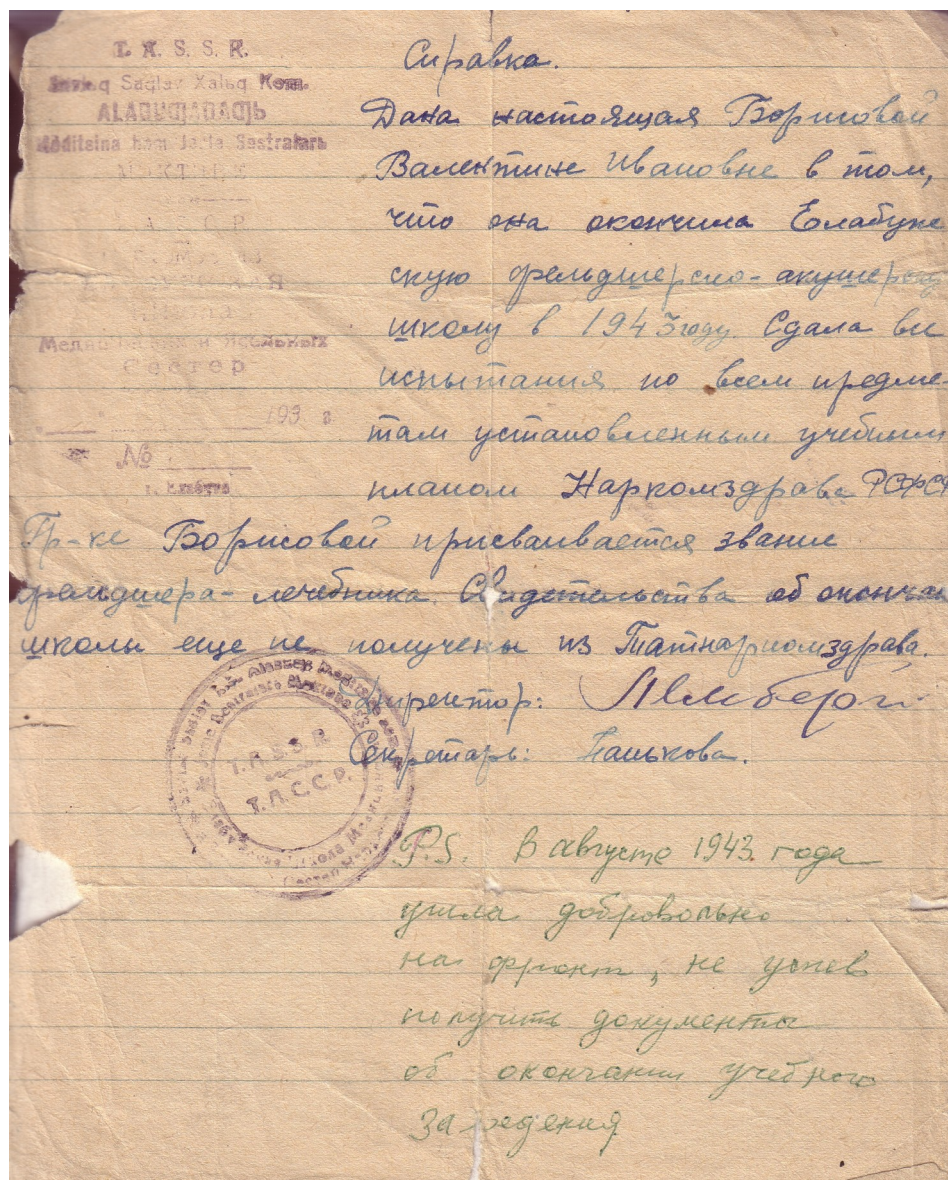 T. A. S. S. R.
Saqlav Xalьq Kom.
ALABUGADAGЬ
Məditsina həm Jətlə Sestraları
Справка.
Дана настоящая Борисовой
Валентине Ивановне в том,
что она окончила Елабужс
скую фельдшерско-акушерскую
школу в 1943 году. Сдала вс
испытания по всем предме-
там установленным учебным
планом Наркомздрава РСФСР
Гр-ке Борисовой присваивается звание
фельдшера-лечебника. Свидетельства об окончан
школы еще не получены из Татнаркомздрава.
Директор:
Секретарь: Пашкова.
А С С Р
Медицинских и
Сестер
193 г.
№
T.A.S.S.R.
Т.А.С.С.Р.
P.S. В августе 1943 года
ушла добровольно
на фронт, не успев
получить документы
об окончании учебного
заведения